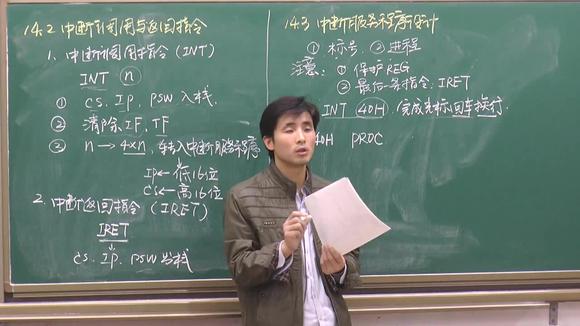 14.2 中断调用与返回指令
1. 中断调用指令 (INT)
INT n
① CS、IP、PSW 入栈.
② 清除IF、TF
③ n → 4×n, 转入中断服务程序
IP ← 低16位
CS ← 高16位
2. 中断返回指令 (IRET)
IRET
CS、IP、PSW 出栈
14.3 中断服务程序设计
① 标号 ② 进程
注意: ① 保护REG
② 最后一条指令: IRET
INT 40H, 完成光标回车换行.
40H PROC